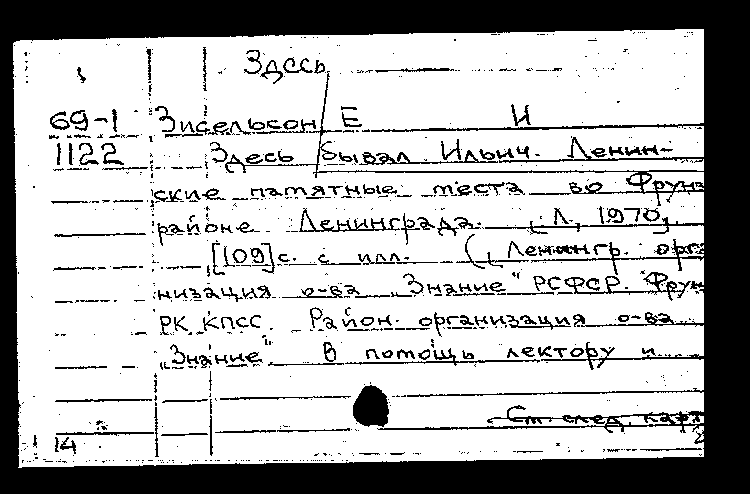 Здесь
69-1 Зисельсон Е И
1122 Здесь бывал Ильич. Ленин-
ские памятные места во Фрунз
районе Ленинграда. [Л., 1970].
[109]с. с илл. (Ленингр. орга
низация о-ва „Знание" РСФСР. Фрун
РК КПСС. Район. организация о-ва
„Знание". В помощь лектору и
См. след. карт
14 2